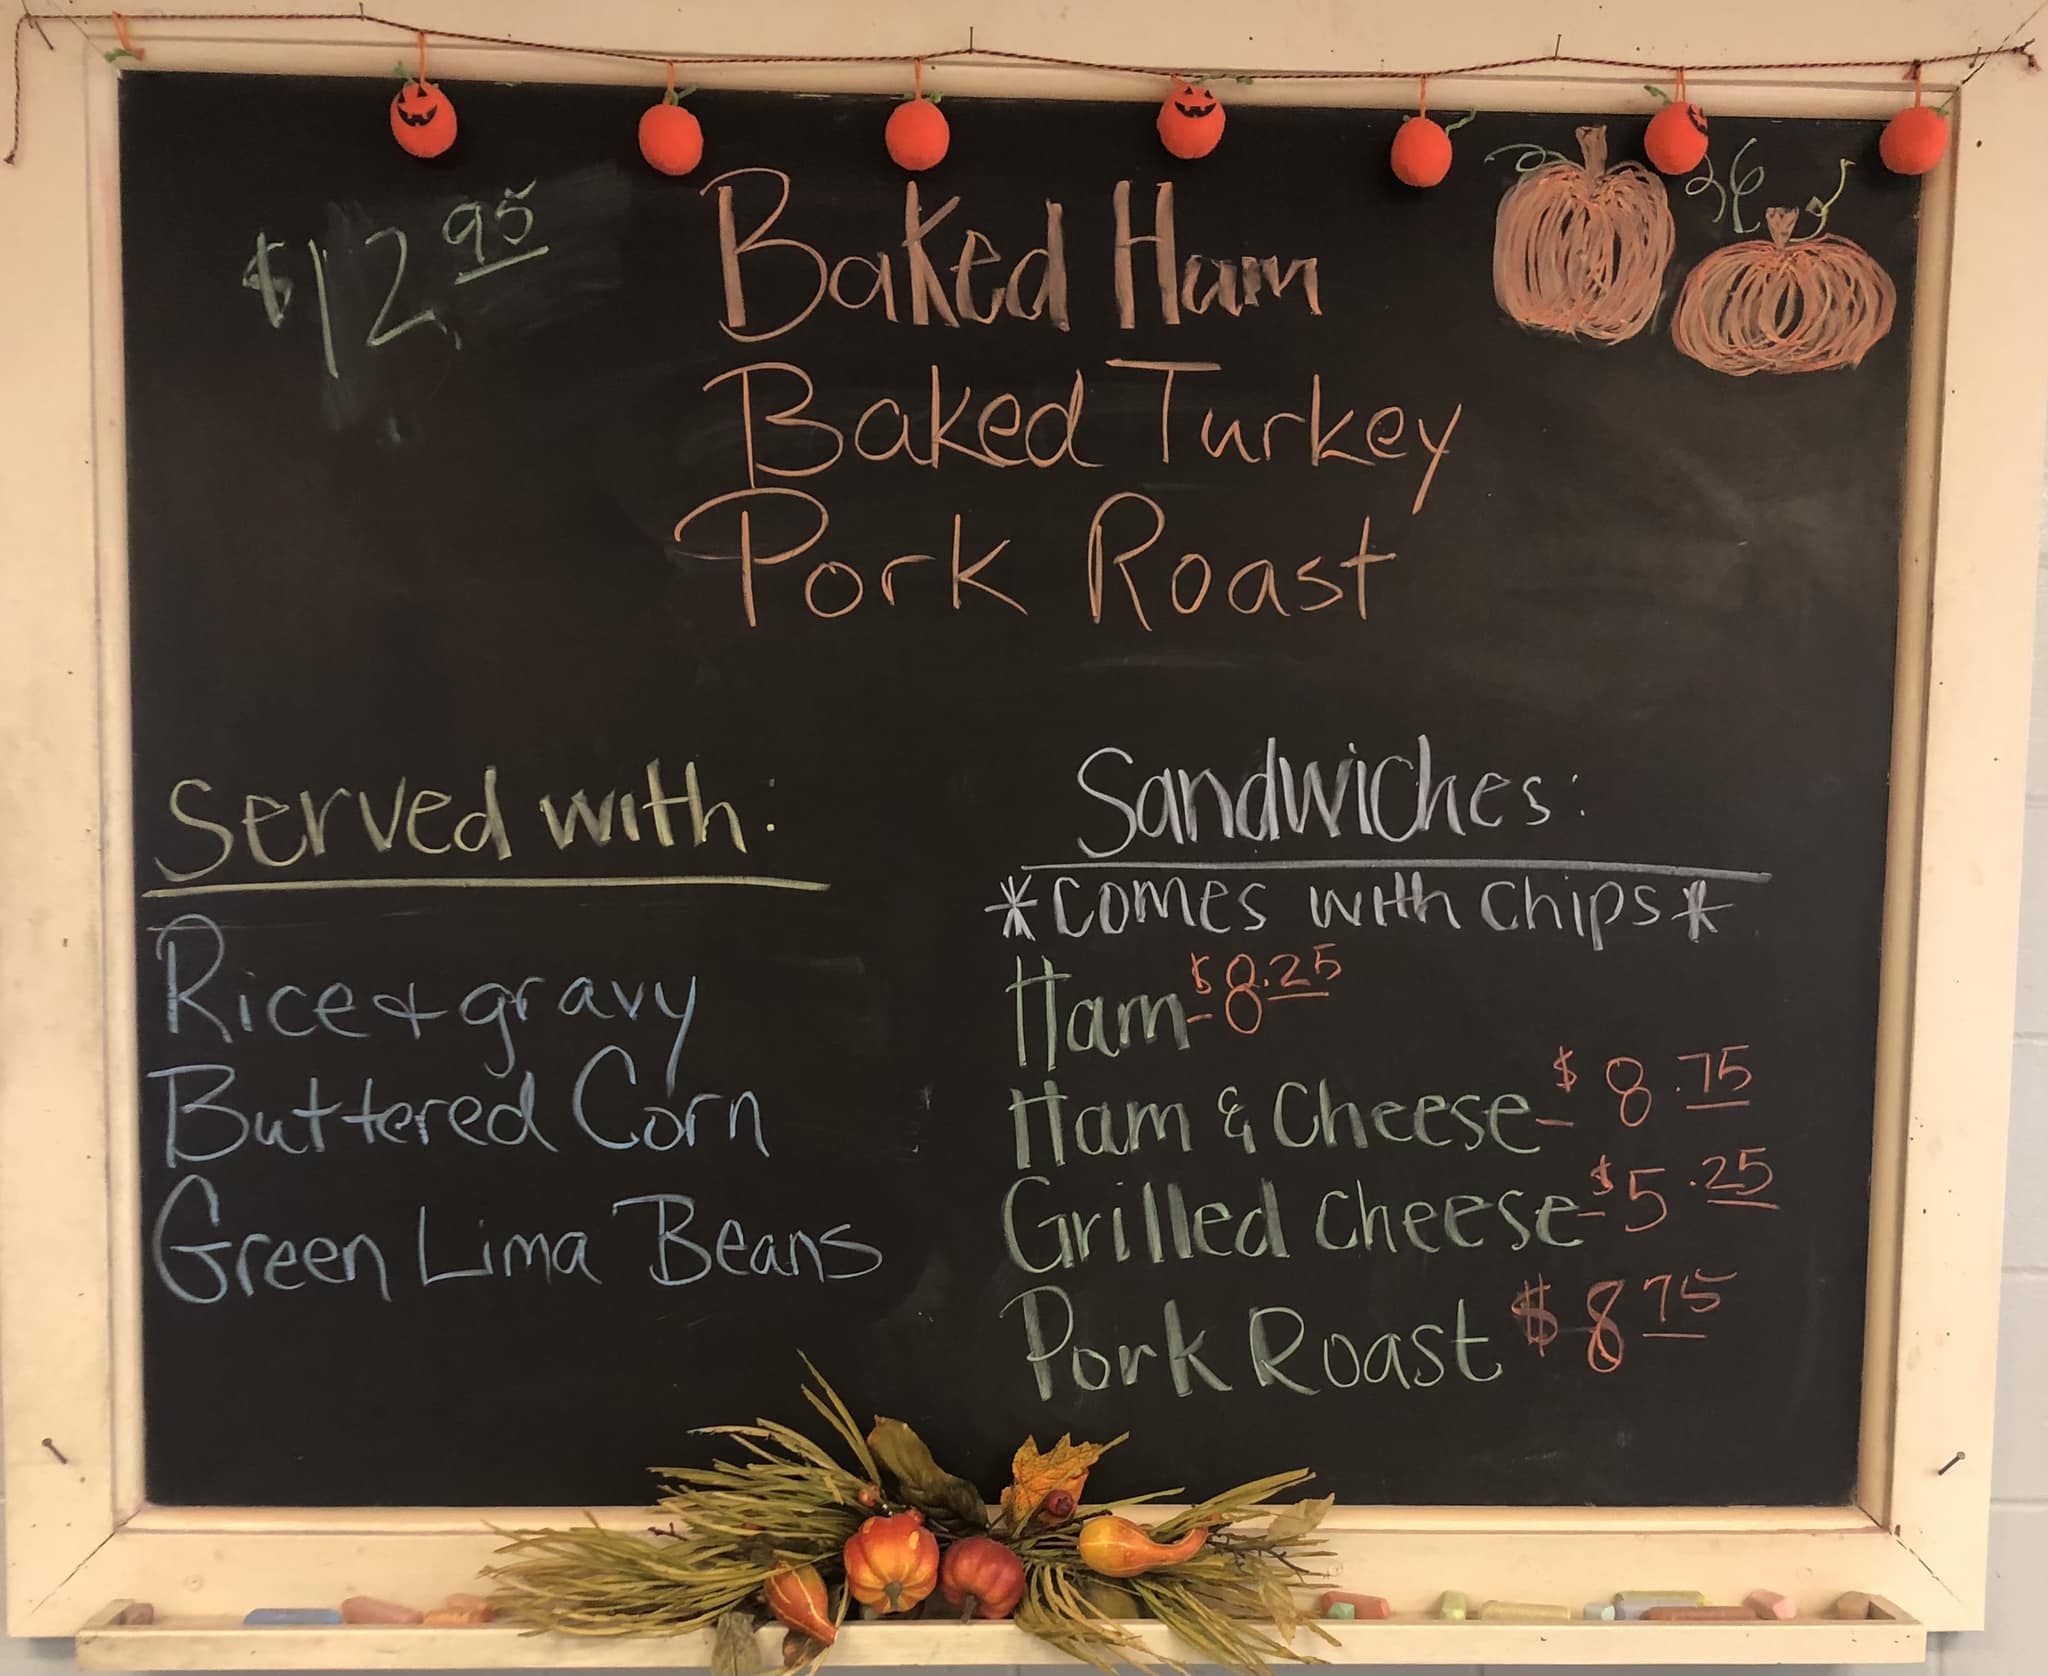 $12.95
Baked Ham
Baked Turkey
Pork Roast
Served with:
Rice & gravy
Buttered Corn
Green Lima Beans
Sandwiches:
*Comes with Chips*
Ham - $8.25
Ham & Cheese - $8.75
Grilled Cheese - $5.25
Pork Roast $8 75